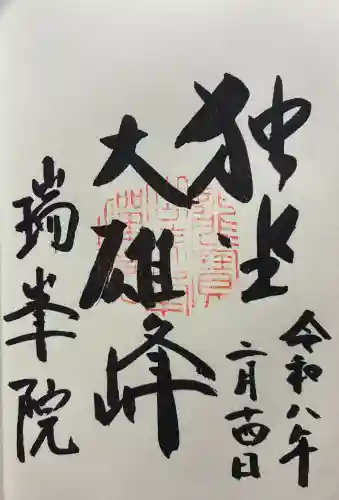 独坐
大雄峰
瑞峯院
令和八年
二月十四日